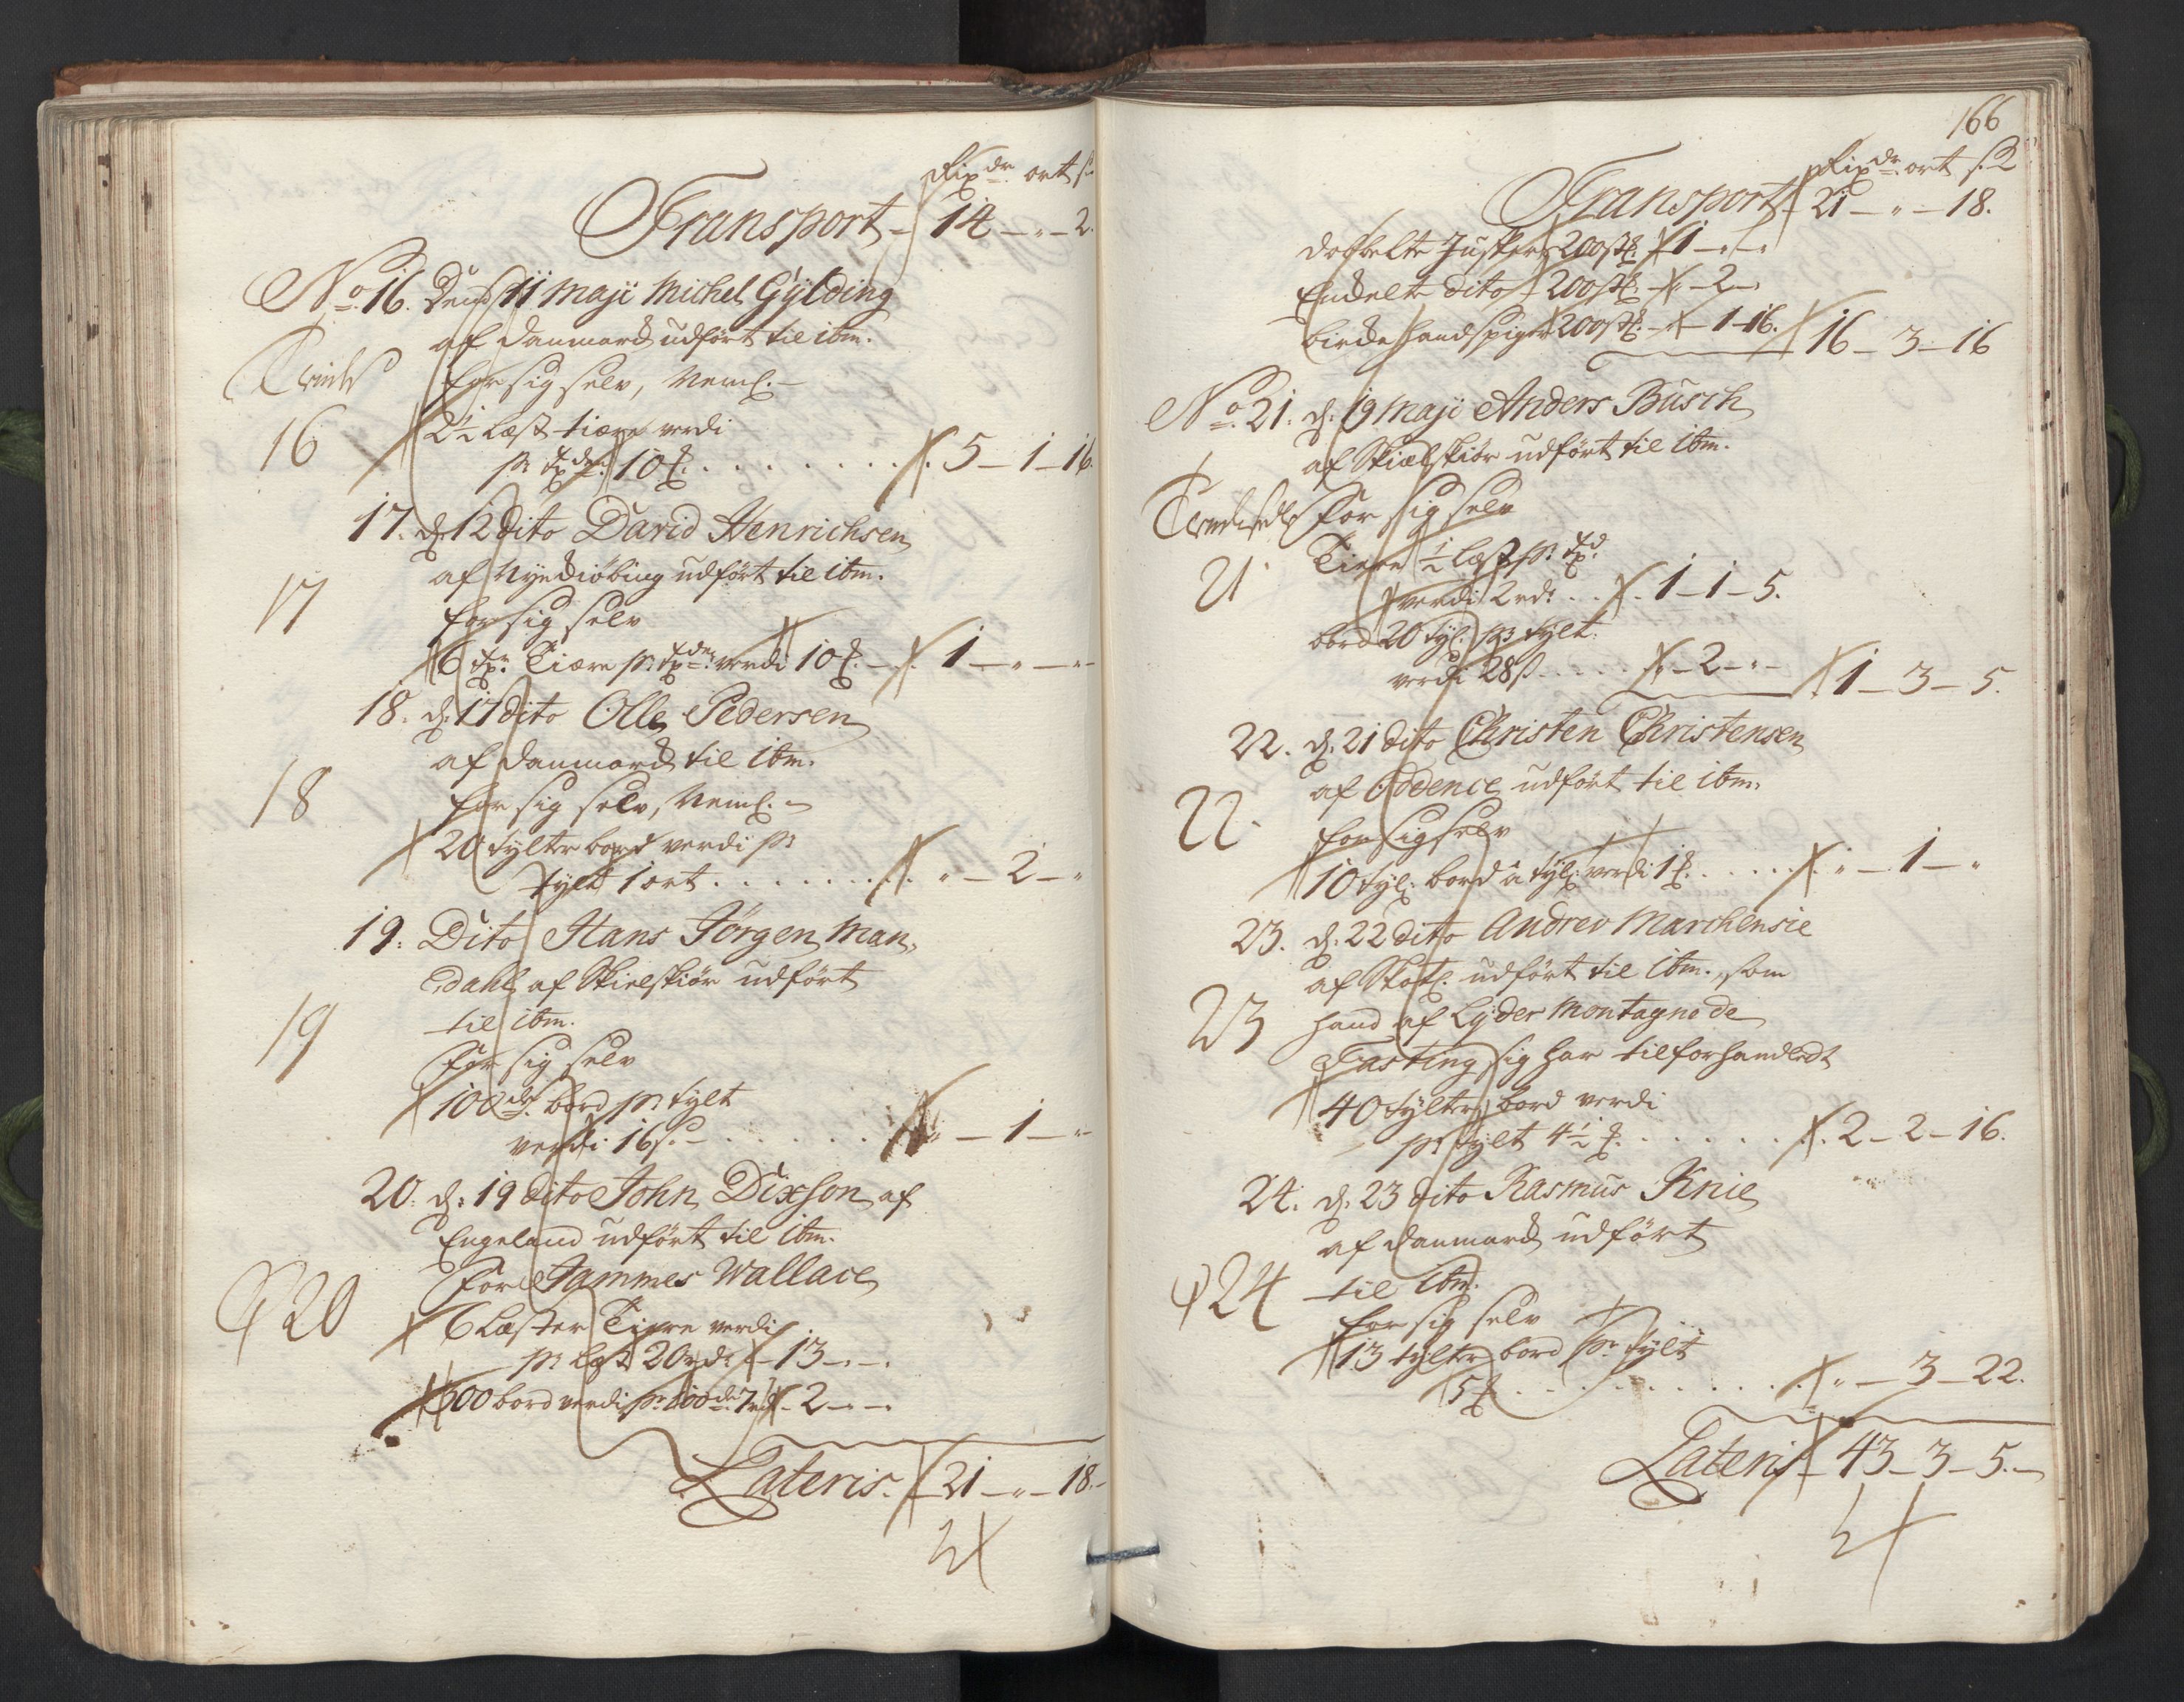 Rixdr ort s
Transport 14 - " - 2.
No 16. Den 11 Maji Michel Gylding
af Danmarck udført til ibm.
for sig selv, Neml.
16
2½ Læst tiære verdi
pr 10 5 - 1 - 16.
17. d. 12 dito David Henrichsen
af Nyekiøbing udført til ibm.
17
for sig selv
6 Tiære pr verdi 10 1 - " - "
18. d. 17 dito Olle Pedersen
af Danmarck til ibm.
18
for sig selv, Neml.
20 tylter bord verdi pr
tylt 1 ort . . . . . . . " - 2 - "
19. Dito Hans Jørgen Man,
dahl af Skielskiør udført
til ibm.
19
for sig selv
100de bord pr tylt
verdi 16 s. - . . . . . . " - 1 - "
20. d. 19 dito John Dixson af
Engeland udført til ibm.
20
for Jammes Wallace
6 Læster Tiere verdi
pr Læst 20 rdr 13 - " - "
600 bord verdi pr 100de 7 rdr 2 - " - "
Lateris. - 21 - " - 18. -
166
Rixdr ort s
Transport 21 - " - 18.
dobbelte 200 1 - " - "
Enckelte dito 200 " - 2 -
200 - 1 - 16. 16 - 3 - 16
No 21. d. 19 Maji Anders Busch
af Skielskiør udført til ibm.
for sig selv
21
Tiere ½ Læst pr
verdi 2 rdr . . 1 - 1 - 5.
bord 20 tyl. pr tylt
verdi 28 s . . . . . " - 2 - " - 1 - 3 - 5.
22. d. 21 dito Christen Christensen
af Oddence udført til ibm.
22.
for sig selv
10 tyl. bord a tyl. verdi 1 . . . . . " - 1 - "
23. d. 22 dito Andrev Marchensie
af Skotl. udført til ibm., som
23
hand af Lyder Montagne de
Tasting sig har tilforhandlet
40 tylter bord verdi
pr tylt 4½ . . . . . . . 2 - 2 - 16.
24. d. 23 dito Rasmus Knie
af Danmarck udført
24
til ibm.
for sig selv
13 tylter bord pr tylt
5 . . . . . . . . . . " - 3 - 22.
Lateris 43 - 3 - 5. -